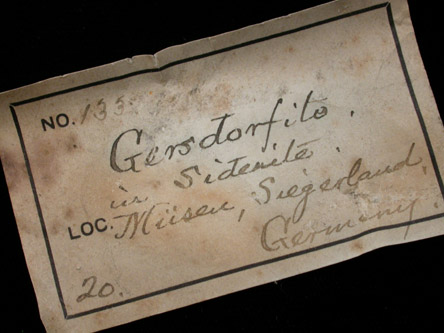 NO. 133
Gersdorfite.
in Siderite.
LOC. Müsen, Siegerland,
Germany.
20.